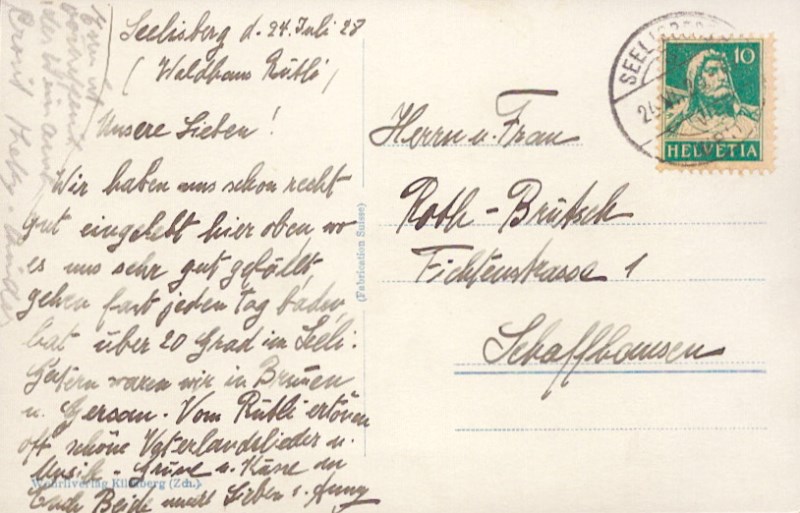 Seelisberg d. 24. Juli 28
(Waldhaus Rütli)
Unsere Lieben!
Wir haben uns schon recht
gut eingelebt hier oben, wo
es uns sehr gut gefällt,
gehen fast jeden Tag baden,
hat über 20 Grad im Seeli.
Gestern waren wir in Brunen
u. Gersau. Vom Rütli ertönen
oft schöne Vaterlandslieder u.
Musik. Grüsse u. Küsse an
Euch Beide unsere Lieben v. Anny
Ernst
Herrn u. Frau
Roth-Brütsch
Fichtenstrasse 1
Schaffhausen
(Fabrication Suisse)
Wehrliverlag Kilchberg (Zch.)
SEELISBERG
10
HELVETIA